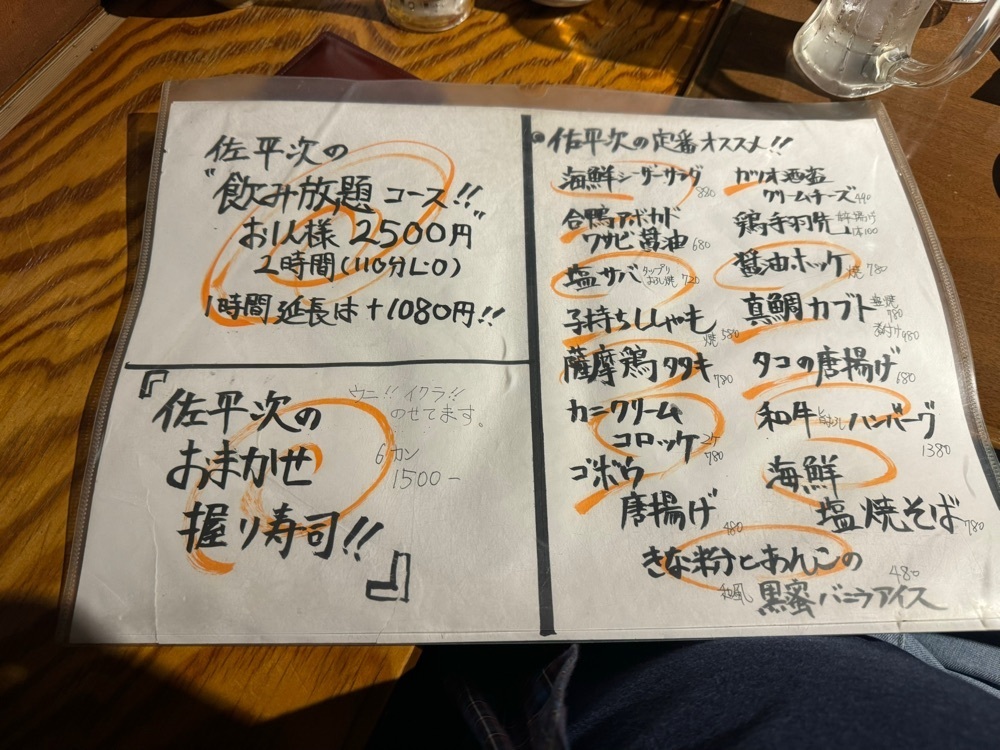 佐平次の
"飲み放題コース!!"
お1人様 2500円
2時間(110分L・O)
1時間延長は+1080円!!
『佐平次の
ウニ!! イクラ!!
のせてます。
おまかせ
6カン
1500-
握り寿司!!』
佐平次の定番オススメ!!
海鮮シーザーサラダ 880
合鴨アボカド
ワサビ醤油 680
塩サバ タップリおろし焼 720
子持ちししゃも 焼 580
薩摩鶏タタキ 780
カニクリーム
コロッケ 2ケ 780
ゴボウ
唐揚げ 480
ガツオ酒盗
クリームチーズ 490
鶏手羽先 1本100
醤油ホッケ 焼 780
真鯛カブト 塩焼 780
煮付け 980
タコの唐揚げ 680
和牛 ハンバーグ
1380
海鮮
塩焼そば 780
きな粉とあんこの
和風 黒蜜バニラアイス 480